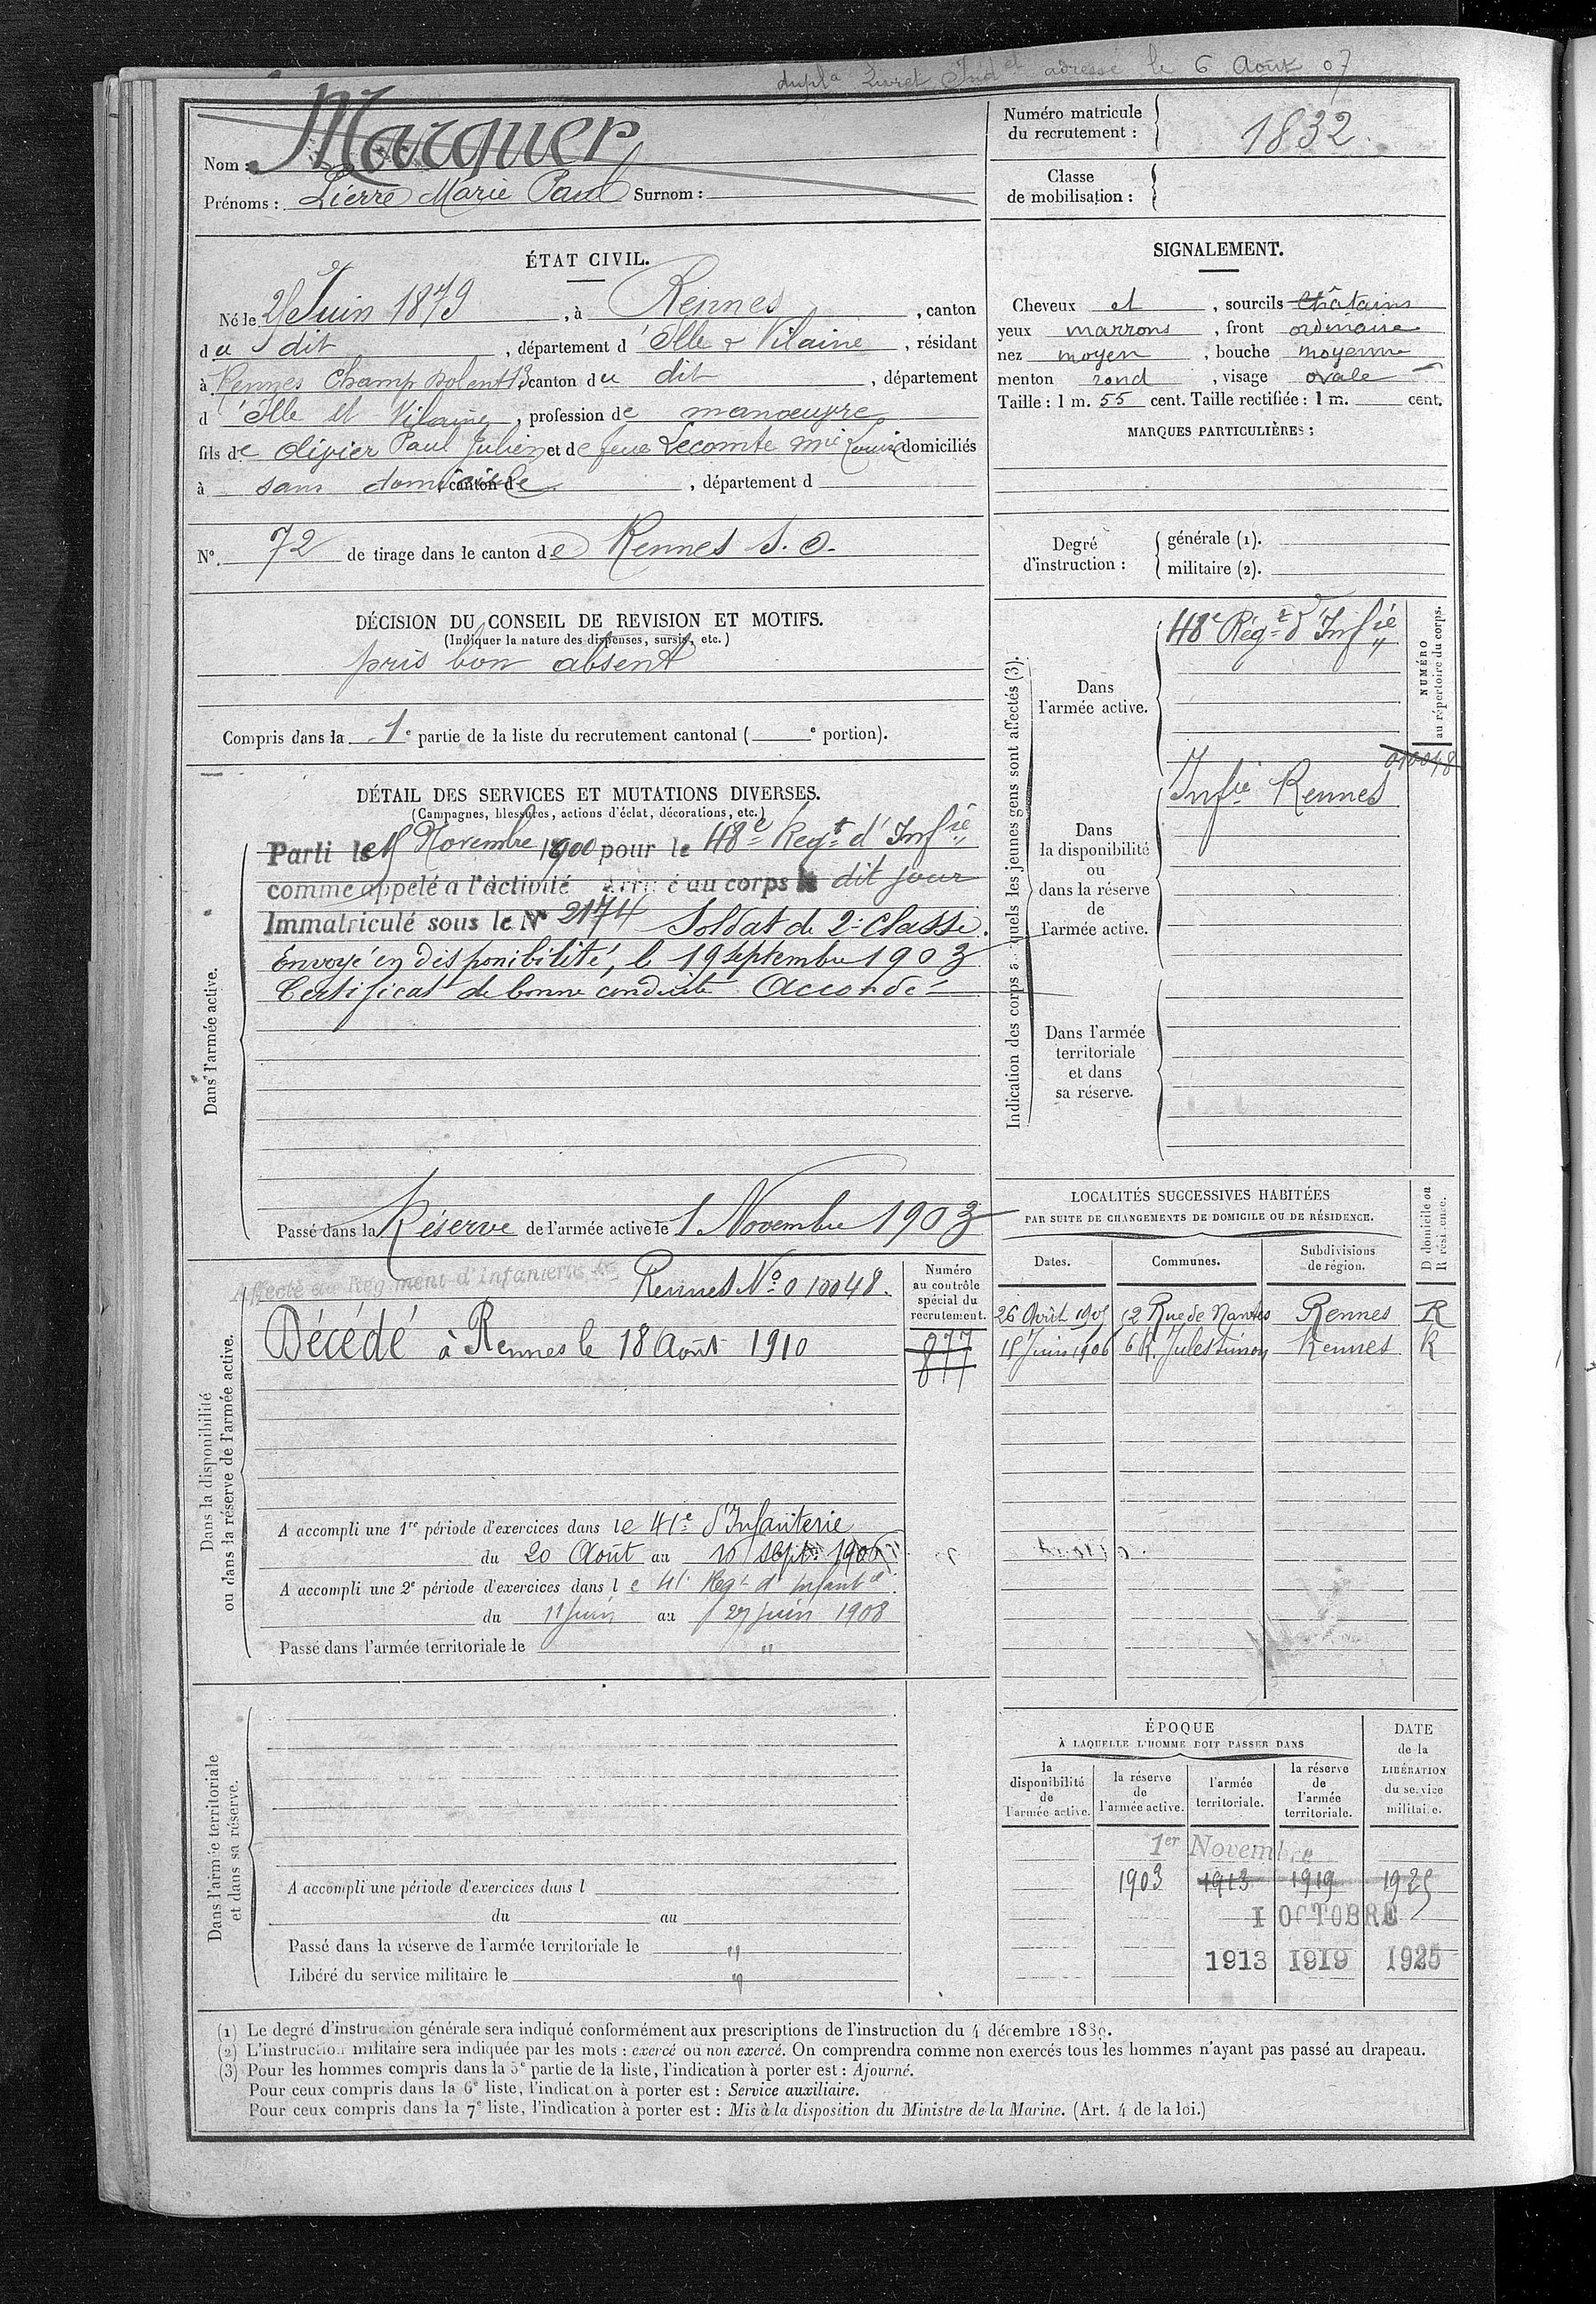 dupl^a Livret Ind^el adressé le 6 Août 07
Nom : Marquer
Prénoms : Pierre Marie Paul Surnom :
Numéro matricule du recrutement : 1832
Classe de mobilisation :
ÉTAT CIVIL.
Né le Juin 1879, à Rennes, canton
du dit, département d'Ille & Vilaine, résidant
à Rennes Champ Dolent 13 canton du dit, département
d'Ille et Vilaine, profession de manoeuvre
fils de Olivier Paul Julien et de feue Lecomte Mie Louise domiciliés
à sans domicile canton de, département d
N°. 72 de tirage dans le canton de Rennes S. O.
DÉCISION DU CONSEIL DE REVISION ET MOTIFS.
(Indiquer la nature des dispenses, sursis, etc.)
pris bon absent
Compris dans la 1e partie de la liste du recrutement cantonal ( e portion).
SIGNALEMENT.
Cheveux et, sourcils châtains
yeux marrons, front ordinaire
nez moyen, bouche moyenne
menton rond, visage ovale
Taille : 1 m. 55 cent. Taille rectifiée : 1 m. cent.
MARQUES PARTICULIÈRES :
Degré d'instruction :
générale (1).
militaire (2).
DÉTAIL DES SERVICES ET MUTATIONS DIVERSES.
(Campagnes, blessures, actions d'éclat, décorations, etc.)
Dans l'armée active.
Parti le Novembre 1900 pour le 48e Regt d'Infie
comme appelé a l'activité Arrivé au corps le dit jour
Immatriculé sous le N° 2174 Soldat de 2e Classe.
Envoyé en disponibilité, le 19 septembre 1903
Certificat de bonne conduite Accordé
Passé dans la Réserve de l'armée active le 1 Novembre 1903
Indication des corps auxquels les jeunes gens sont affectés (3).
NUMÉRO au répertoire du corps.
Dans l'armée active.
48e Régt d'Infie
010048
Dans la disponibilité ou dans la réserve de l'armée active.
Infie Rennes
Dans l'armée territoriale et dans sa réserve.
Dans la disponibilité ou dans la réserve de l'armée active.
Affecté au Régiment d'infanterie de Rennes No 010048.
Décédé à Rennes le 18 Août 1910
Numéro au contrôle spécial du recrutement.
877
877
A accompli une 1re période d'exercices dans le 41e d'Infanterie
du 20 Août au 16 sept. 1906
A accompli une 2e période d'exercices dans le 41e Regt d'Infantie
du 11 juin au 27 juin 1908
Passé dans l'armée territoriale le "
LOCALITÉS SUCCESSIVES HABITÉES
PAR SUITE DE CHANGEMENTS DE DOMICILE OU DE RÉSIDENCE.
Dates. Communes. Subdivisions de région. D domicile ou R résidence.
26 Avril 52 Rue de Nantes Rennes R
15 Juin 1906 6 R. Jules Simon Rennes R
Dans l'armée territoriale et dans sa réserve.
A accompli une période d'exercices dans l
du au
Passé dans la réserve de l'armée territoriale le "
Libéré du service militaire le "
ÉPOQUE
À LAQUELLE L'HOMME DOIT PASSER DANS
la disponibilité de l'armée active.
la réserve de l'armée active.
l'armée territoriale.
la réserve de l'armée territoriale.
DATE de la LIBÉRATION du service militaire.
1er Novembre
1903 1913 1919 1925
1 OCTOBRE
1913 1919 1925
(1) Le degré d'instruction générale sera indiqué conformément aux prescriptions de l'instruction du 4 décembre 1889.
(2) L'instruction militaire sera indiquée par les mots : exercé ou non exercé. On comprendra comme non exercés tous les hommes n'ayant pas passé au drapeau.
(3) Pour les hommes compris dans la 5e partie de la liste, l'indication à porter est : Ajourné.
Pour ceux compris dans la 6e liste, l'indication à porter est : Service auxiliaire.
Pour ceux compris dans la 7e liste, l'indication à porter est : Mis à la disposition du Ministre de la Marine. (Art. 4 de la loi.)